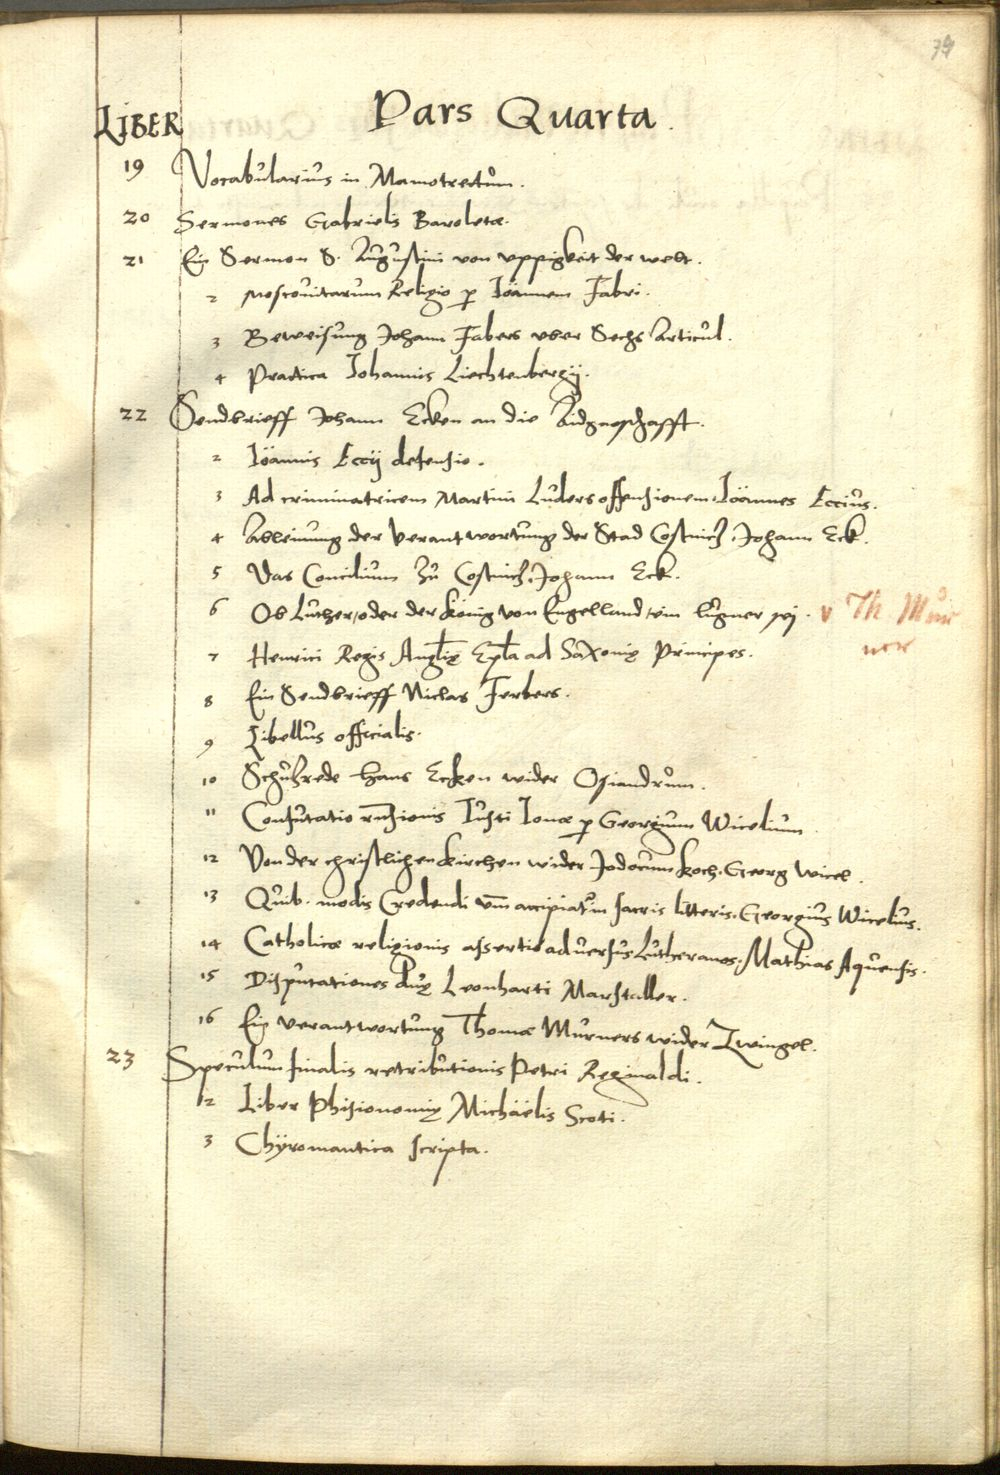 LIBER Pars Quarta.
19 Vocabularius in Mamotrectům.
20 Sermones Gabrielis Baroletæ.
21 Ein Sermon S. Augustini von uppigkeit der welt.
2 Moscovitarum Religio p Ioannem Fabri.
3 Beweisung Johann Fabers vber Sechs Articul.
4 Practica Johannis Liechtenbergij.
22 Sendbrieff Johann Ecken an die Aidgnoschafft.
2 Ioannis Eccij defensio.
3 Ad criminatricem Martini Luders offensionem. Ioannes Eccius.
4 Ableinung der Verantwortung der Stad Costnicz. Johann Eck.
5 Das Concilium zů Costnicz. Johann Eck.
6 Ob Luther, oder der König von Engelland, ein lůgner sej. v Th. Můr
ner
7 Henrici Regis Anglię Epla ad Saxonię Principes.
8 Ein Sendbrieff Niclas Ferbers.
9 Libellus officialis.
10 Schůczrede Hans Ecken wider Osiandrům.
11 Confutatio rñsionis Iusti Ionæ p Georgium Wicelium.
12 Von der christlichen Kirchen wider Jodocum Koch. Georg Wicel.
13 Quib. modis Credendi vm accipiatur in sacris litteris. Georgius Wicelius.
14 Catholicæ religionis assertio adversus Lutheranos. Mathias Aquensis.
15 Disputationes duę Leonharti Marstaller.
16 Ein verantwortung Thomæ Murners wider Zwingel.
23 Speculum finalis retributionis Petri Reginaldi.
2 Liber Phisionomię Michaëlis Scoti.
3 Chÿromantica scripta.